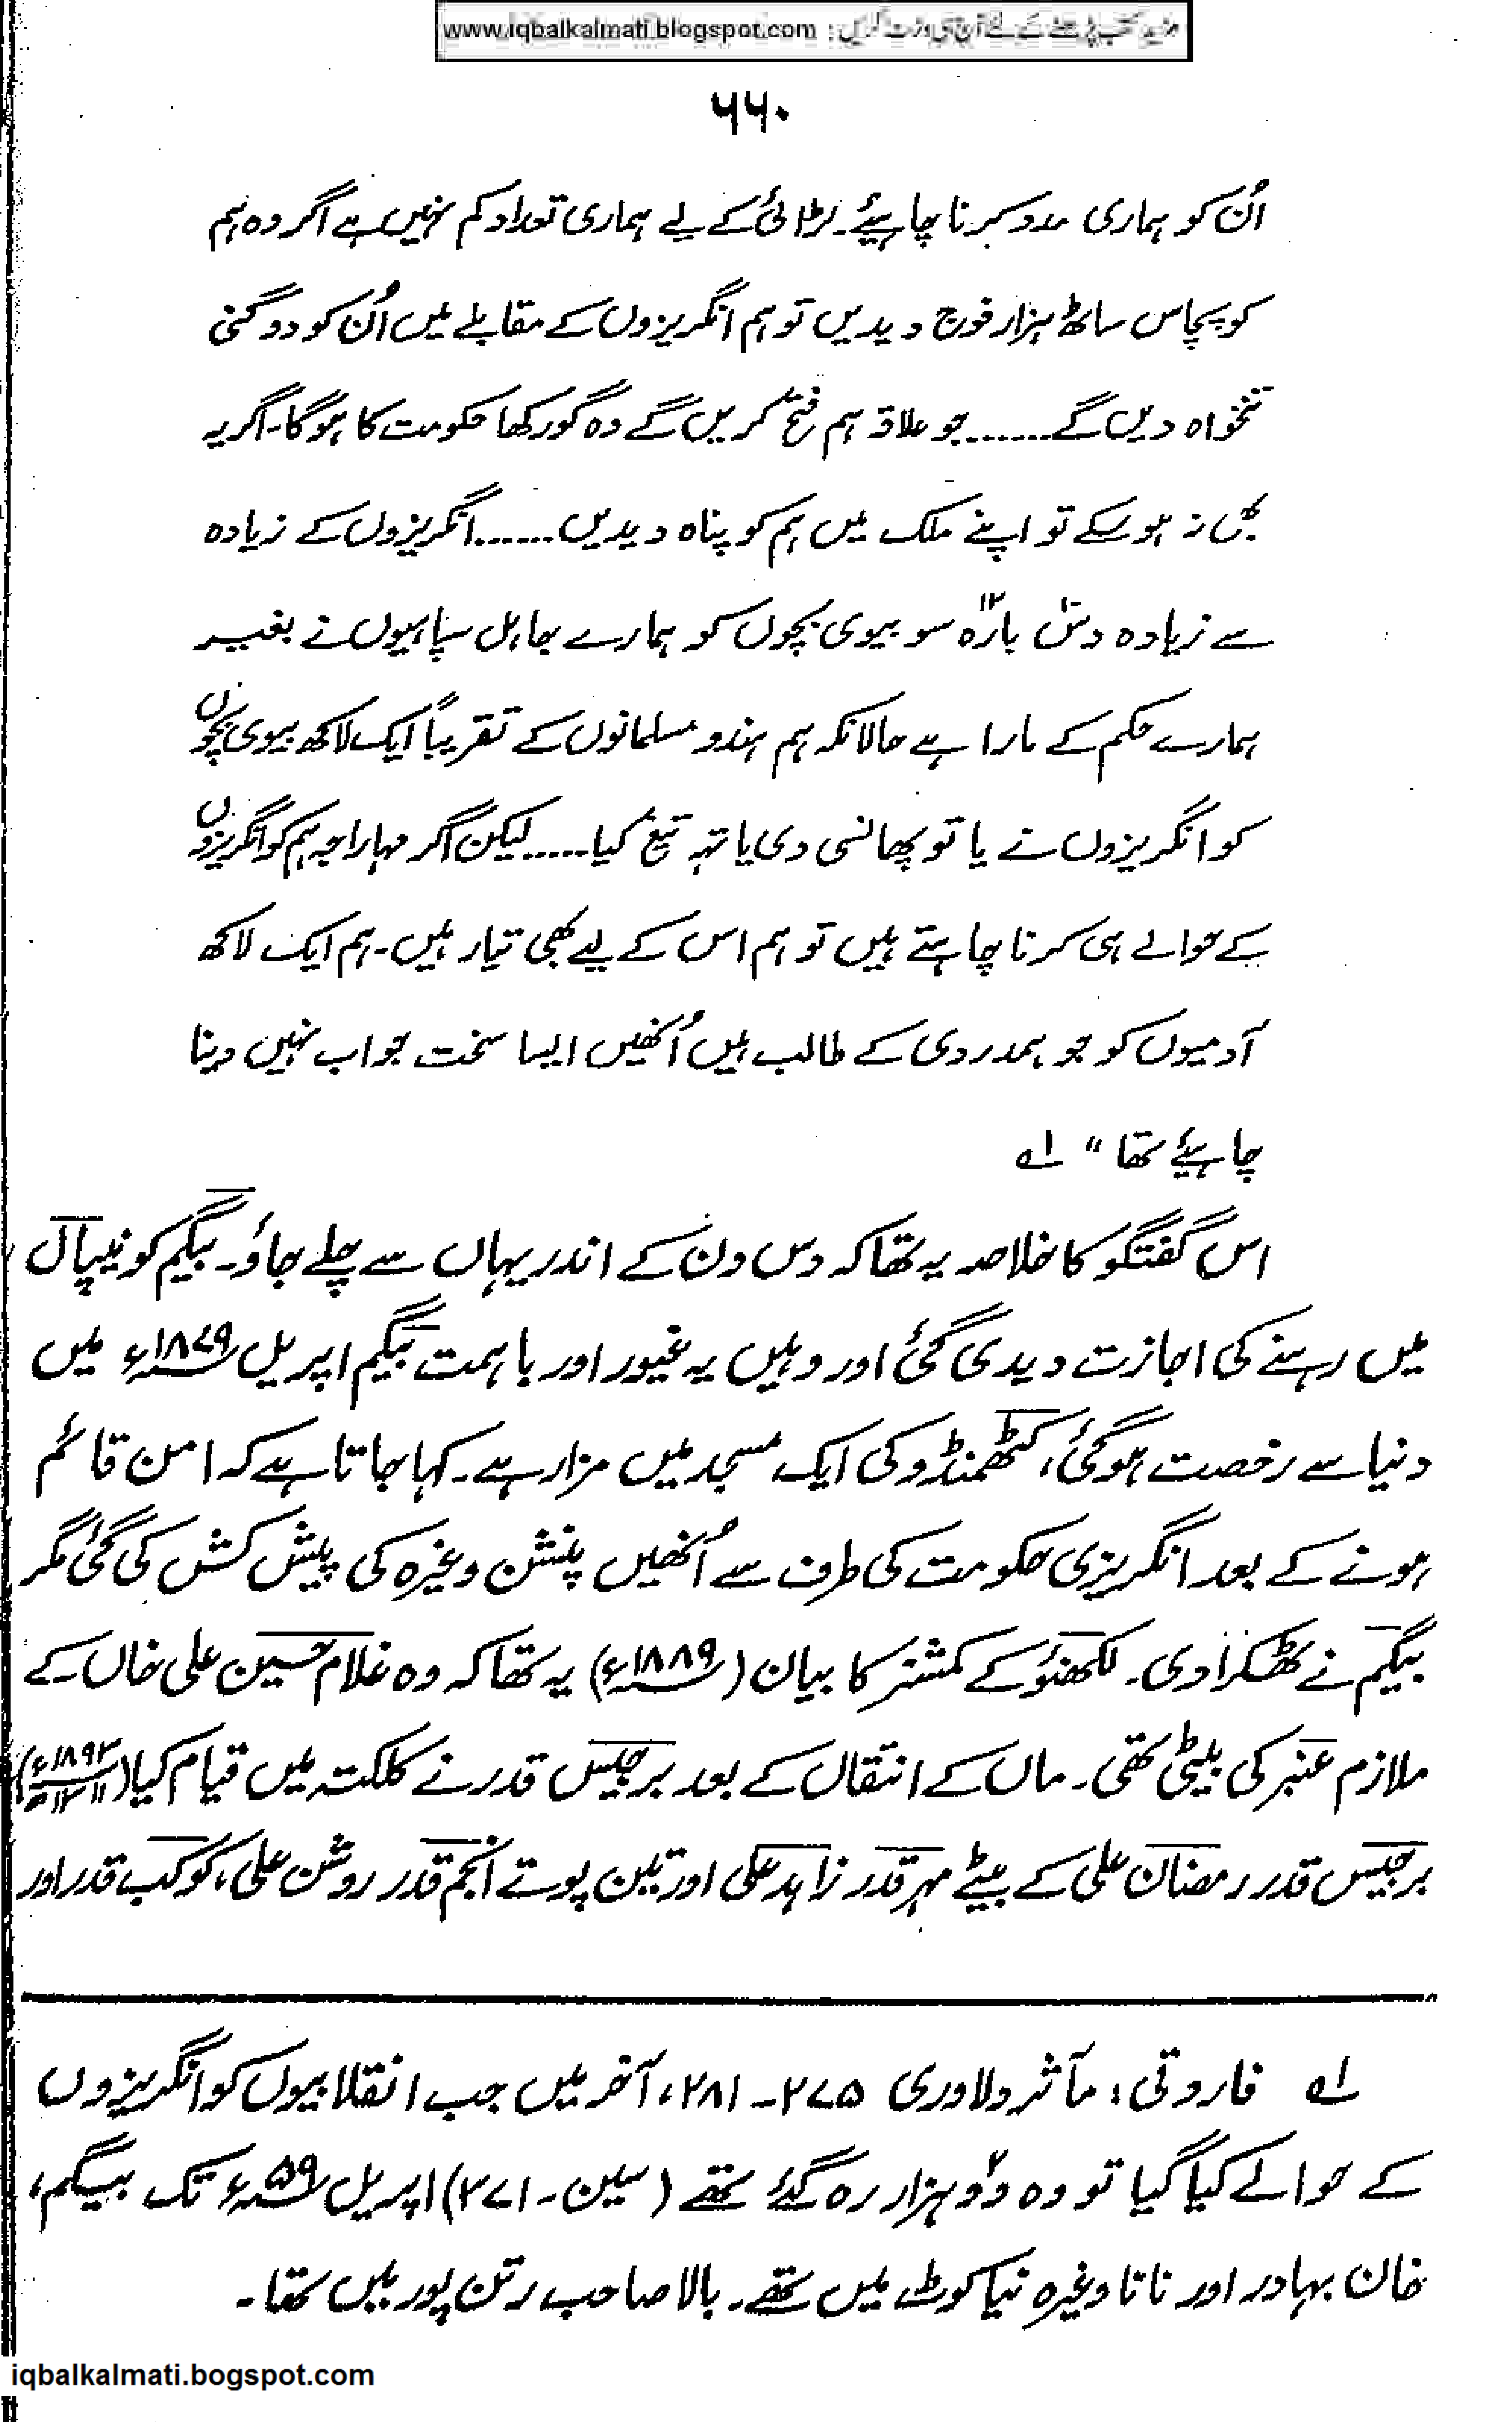 مزید کتب پڑھنے کے لئے آج ہی وزٹ کریں : www.iqbalkalmati.blogspot.com
۵۶۰
اُن کو ہماری مدد کرنا چاہیئے۔ لڑائی کے لیے ہماری تعداد کم نہیں ہے اگر وہ ہم
کو پچاس ساٹھ ہزار فوج دیدیں تو ہم انگریزوں کے مقابلے میں اُن کو دوگنی
تنخواہ دیں گے ....... جو علاقہ ہم فتح کریں گے وہ گورکھا حکومت کا ہوگا۔ اگر یہ
بھی نہ ہو سکے تو اپنے ملک میں ہم کو پناہ دیدیں ....... انگریزوں کے زیادہ
سے زیادہ دس۱۰ بارہ۱۲ سو بیوی بچوں کو ہمارے جاہل سپاہیوں نے بغیر
ہمارے حکم کے مارا ہے حالانکہ ہم ہندو مسلمانوں کے تقریباً ایک لاکھ بیوی بچوں
کو انگریزوں نے یا تو پھانسی دی یا تہہ تیغ کیا ...... لیکن اگر مہاراجہ ہم کو انگریزوں
کے حوالے ہی کرنا چاہتے ہیں تو ہم اس کے لیے بھی تیار ہیں۔ ہم ایک لاکھ
آدمیوں کو جو ہمدردی کے طالب ہیں اُنھیں ایسا سخت جواب نہیں دینا
چاہیئے تھا" ۱ے
اس گفتگو کا خلاصہ یہ تھا کہ دس دن کے اندر یہاں سے چلے جاؤ۔ بیگم کو نیپال
میں رہنے کی اجازت دیدی گئی اور وہیں یہ غیور اور باہمت بیگم اپریل ۱۸۷۹ء میں
دنیا سے رخصت ہوگئی، کٹھمنڈو کی ایک مسجد میں مزار ہے۔ کہا جاتا ہے کہ امن قائم
ہونے کے بعد انگریزی حکومت کی طرف سے اُنھیں پنشن وغیرہ کی پیش کش کی گئی مگر
بیگم نے ٹھکرا دی۔ لکھنؤ کے کمشنر کا بیان (۱۸۸۹ء) یہ تھا کہ وہ غلام حسین علی خاں کے
ملازم عنبر کی بیٹی تھی۔ ماں کے انتقال کے بعد برجیس قدر نے کلکتہ میں قیام کیا (۱۸۹۳ء)
برجیس قدر رمضان علی کے بیٹے مہر قدر زاہد علی اور تین پوتے انجم قدر روشن علی، کوکب قدر اور
۱ے فاروقی، مآثر دلاوری ۲۷۵۔۲۸۱، آخر میں جب انقلابیوں کو انگریزوں
کے حوالے کیا گیا تو وہ دو۲ ہزار رہ گئے تھے (سین۔ ۳۷۱) اپریل ۵۹ء تک بیگم،
خان بہادر اور نانا وغیرہ نیا کوٹ میں تھے۔ بالا صاحب رتن پور میں تھا۔
iqbalkalmati.bogspot.com